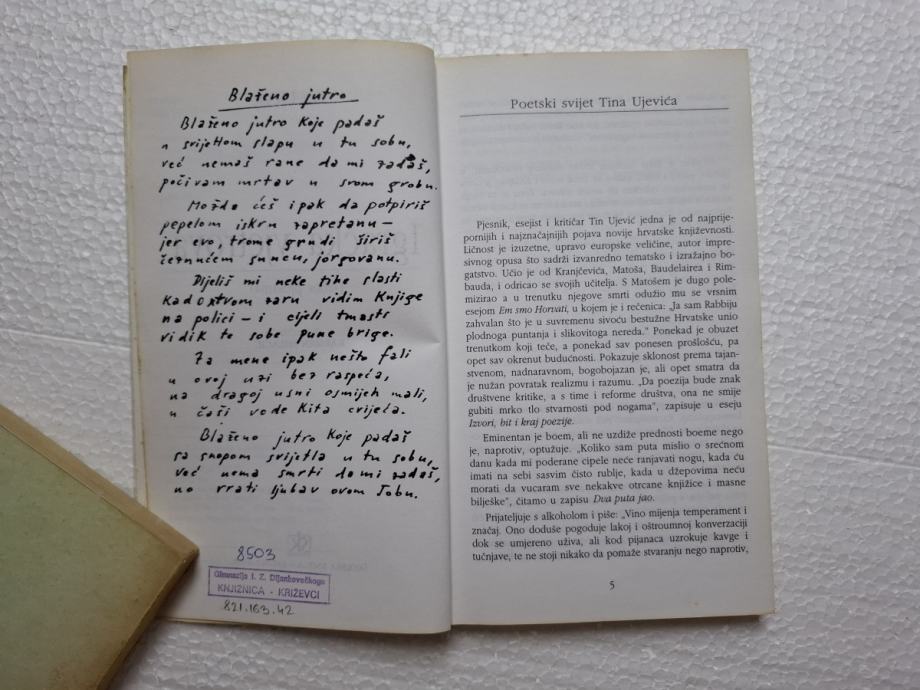 Blaženo jutro
Blaženo jutro koje padaš
u svijetlom slapu u tu sobu,
već nemaš rane da mi zadaš,
počivam mrtav u svom grobu.
Možda ćeš ipak da potpiriš
pepelom iskru zapretanu –
jer evo, trome grudi širiš
čeznućem suncu, jorgovanu.
Dijeliš mi neke tihe slasti
Kad otvorm zaru vidim knjige
na polici – i cijeli tmasti
vidik te sobe pune brige.
Za mene ipak nešto fali
u ovoj uzi bez raspeća,
na dragoj usni osmijeh mali,
u čaši vode kita cvijeća.
Blaženo jutro koje padaš
sa snopom svijetla u tu sobu,
već nema smrti da mi zadaš,
no vrati ljubav ovom Jobu.
8503
Gimnazija I. Z. Dijankovečkoga
KNJIŽNICA - KRIŽEVCI
821.163.42
Poetski svijet Tina Ujevića
Pjesnik, esejist i kritičar Tin Ujević jedna je od najprije-
pornijih i najznačajnijih pojava novije hrvatske književnosti.
Ličnost je izuzetne, upravo europske veličine, autor impre-
sivnog opusa što sadrži izvanredno tematsko i izražajno bo-
gatstvo. Učio je od Kranjčevića, Matoša, Baudelairea i Rim-
bauda, i odricao se svojih učitelja. S Matošem je dugo pole-
mizirao a u trenutku njegove smrti odužio mu se vrsnim
esejom Em smo Horvati, u kojem je i rečenica: „Ja sam Rabbiju
zahvalan što je u suvremenu sivoću bestužne Hrvatske unio
plodnoga puntanja i slikovitoga nereda." Ponekad je obuzet
trenutkom koji teče, a ponekad sav ponesen prošlošću, pa
opet sav okrenut budućnosti. Pokazuje sklonost prema tajan-
stvenom, nadnaravnom, bogobojazan je, ali opet smatra da
je nužan povratak realizmu i razumu. „Da poezija bude znak
društvene kritike, a s time i reforme društva, ona ne smije
gubiti mrko tlo stvarnosti pod nogama", zapisuje u eseju
Izvori, bit i kraj poezije.
Eminentan je boem, ali ne uzdiže prednosti boeme nego
je, naprotiv, optužuje. „Koliko sam puta mislio o srećnom
danu kada mi poderane cipele neće ranjavati nogu, kada ću
imati na sebi sasvim čisto rublje, kada u džepovima neću
morati da vucaram sve nekakve otrcane knjižice i masne
bilješke", čitamo u zapisu Dva puta jao.
Prijateljuje s alkoholom i piše: „Vino mijenja temperament i
značaj. Ono doduše pogoduje lakoj i oštroumnoj konverzaciji
dok se umjereno uživa, ali kod pijanaca uzrokuje kavge i
tučnjave, te ne stoji nikako da pomaže stvaranju nego naprotiv,
5